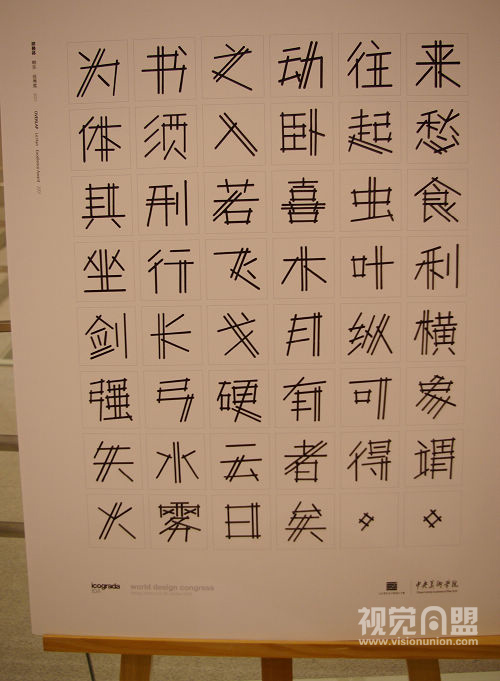 为书之动往来
体须入卧起愁
其刑若喜虫食
坐行飞木叶利
剑长戈月纵横
强弓硬有可象
矢水云者得谓
火雾日矣。。
icograda
world design congress
中央美术学院
视觉同盟
www.visionunion.com